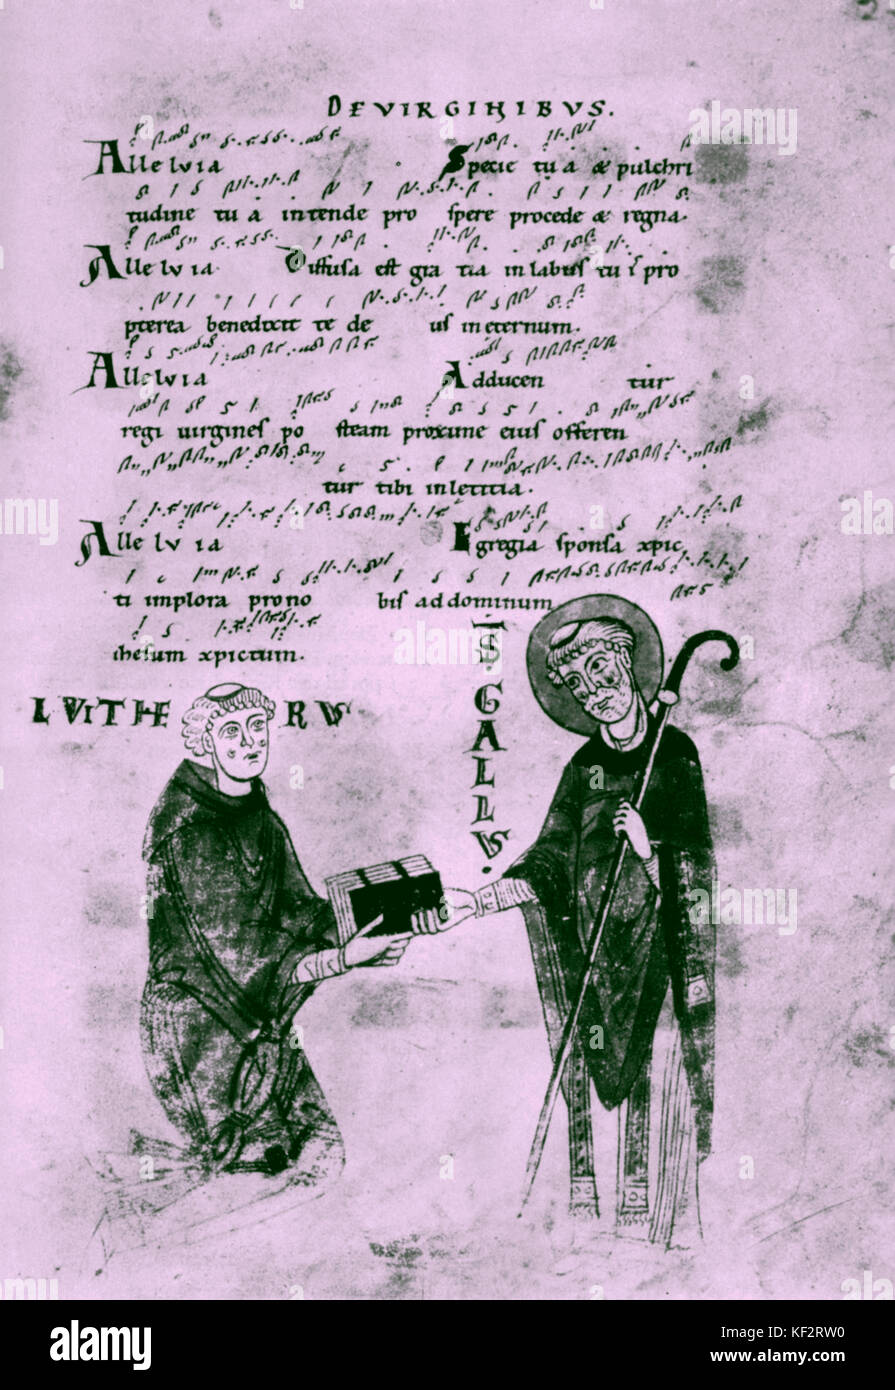 DE VIRGINIBVS.
Allelvia Specie tua & pulchri
tudine tua intende prospere procede & regna.
Allelvia. Diffusa est gratia in labiis tuis pro
pterea benedixit te deus in eternum.
Allelvia Adducentur
regi virgines posteam proxime eius offeren
tur tibi in letitia.
Allelvia Egregia sponsa xpic
ti implora pro nobis ad dominum
ihesum xpictum.
LVITHERVS
S GALLVS.
alamy
Image ID: KF2RW0
www.alamy.com